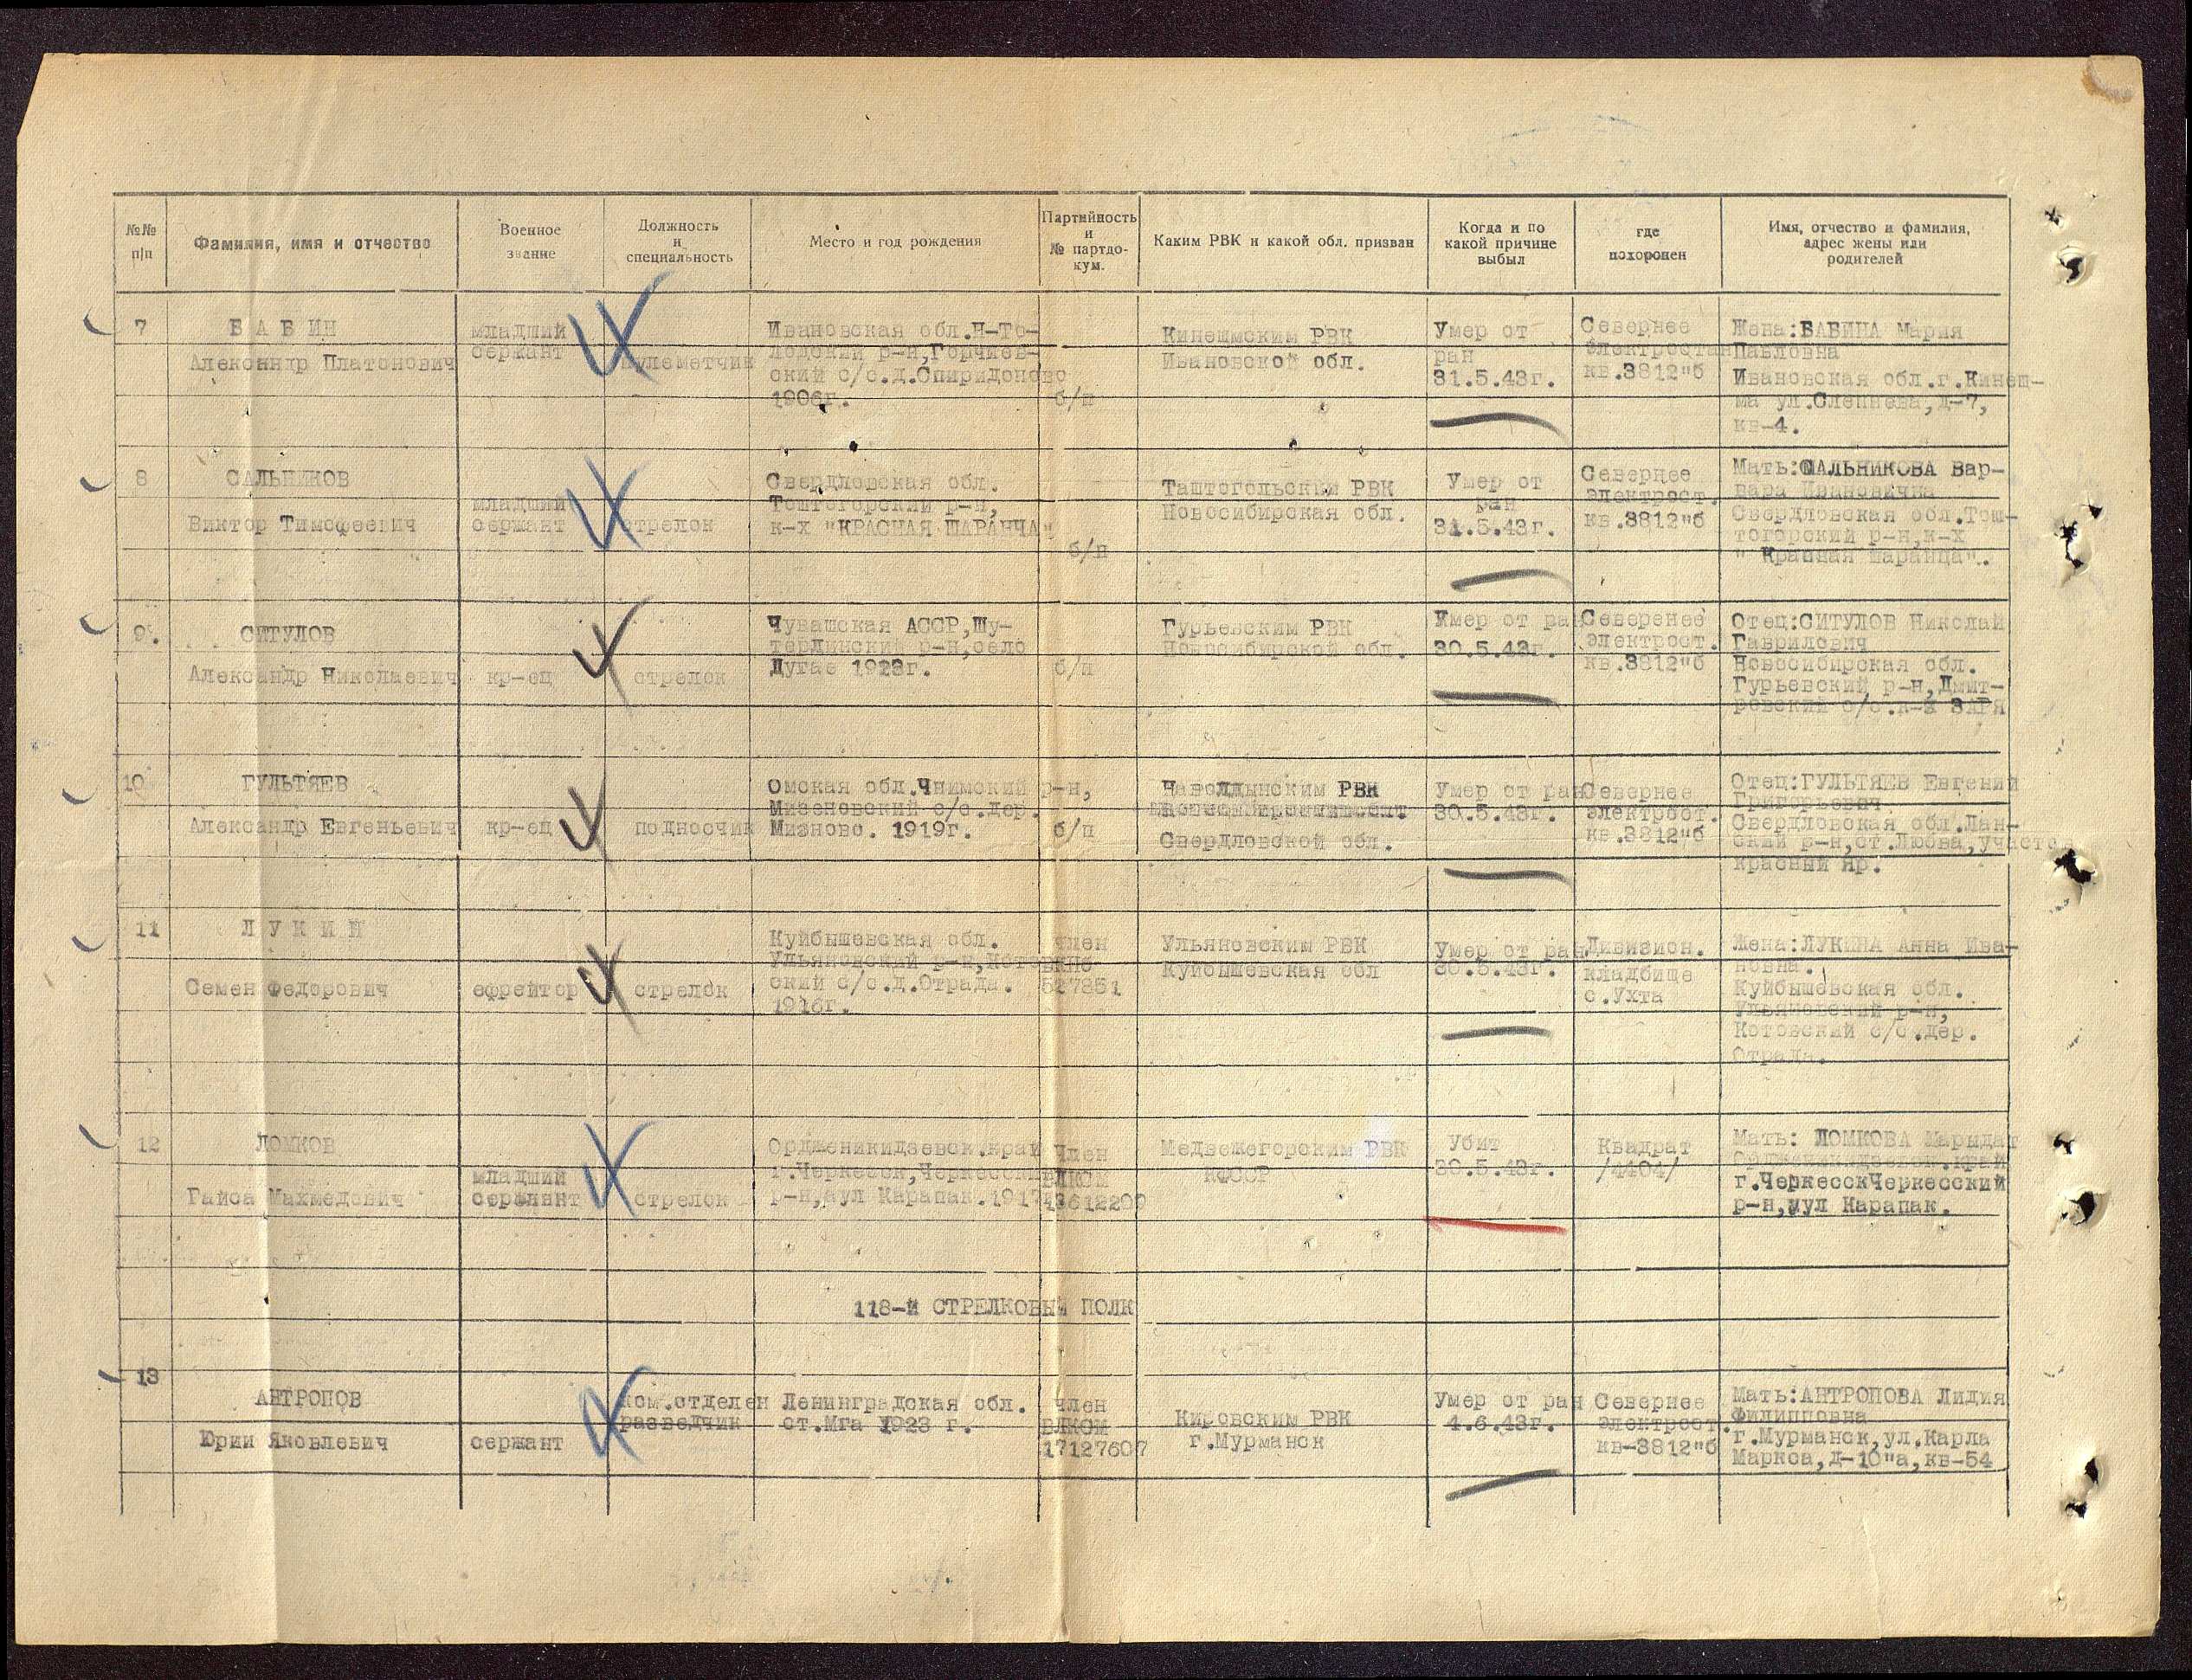 №№ п/п
Фамилия, имя и отчество
Военное звание
Должность и специальность
Место и год рождения
Партийность и № партдокум.
Каким РВК и какой обл. призван
Когда и по какой причине выбыл
где похоронен
Имя, отчество и фамилия, адрес жены или родителей
7
БАБИН
Александр Платонович
младший
сержант
пулеметчик
Ивановская обл.Н-То-
лодский р-н,Горчиев-
ский с/с.д.Спиридоново
1906г.
б/п
Кинешмским РВК
Ивановской обл.
Умер от
ран
31.5.43г.
Севернее
электростан
кв.3812"б
Жена:БАБИНА Мария
Павловна
Ивановская обл.г.Кинеш-
ма ул.Слепнева,д-7,
кв-4.
8
САЛЬНИКОВ
Виктор Тимофеевич
младший
сержант
стрелок
Свердловская обл.
Тоштогорский р-н,
к-х "КРАСНАЯ ШАРАНЧА"
б/п
Таштогольским РВК
Новосибирская обл.
Умер от
ран
31.5.43г.
Севернее
электрост.
кв.3812"б
Мать:САЛЬНИКОВА Вар-
вара Ивановична
Свердловская обл.Тош-
тогорский р-н,к-х
" Красная Шаранца".
9.
СИТУЛОВ
Александр Николаевич
кр-ец
стрелок
Чувашская АССР,Шу-
терлинский р-н,село
Дугае 1923г.
б/п
Гурьевским РВК
Новосибирской обл.
Умер от ран
30.5.43г.
Северенее
электрост.
кв.3812"б
Отец:СИТУЛОВ Николай
Гаврилович
Новосибирская обл.
Гурьевский р-н,Дмит-
ровский с/с.к-х ЗАРЯ
10
ГУЛЬТЯЕВ
Александр Евгеньевич
кр-ец
подносчик
Омская обл.Чнимский р-н,
Мизеновский с/с.дер.
Мизново. 1919г.
б/п
РВК
Свердловской обл.
Умер от ран
30.5.43г.
Севернее
электрост.
кв.3812"б
Отец:ГУЛЬТЯЕВ Евгений
Григорьевич
Свердловская обл.Лан-
ский р-н,ст.Любва,участо
красный Яр.
11
ЛУКИН
Семен Федорович
ефрейтор
стрелок
Куйбышевская обл.
Ульяновский р-н,
ский с/с.д.Отрада.
1916г.
член
527851
Ульяновским РВК
Куйбышевская обл
Умер от ран
30.5.43г.
Дивизион.
кладбище
с.Ухта
Жена:ЛУКИНА Анна Ива-
новна.
Куйбышевская обл.
Ульяновский р-н,
Котовский с/с.дер.
Отрада.
12
ЛОМКОВ
Гайса Махмедович
младший
сержант
стрелок
Ордженикидзевск.край
г.Черкесск,Черкесский
р-н,аул Карапак.1917
член
ВЛКСМ
13612209
Медвежегорским РВК
КФССР
Убит
30.5.43г.
Квадрат
/4404/
Мать: ЛОМКОВА Марыдат
Орджоникидзевск.край
г.ЧеркесскЧеркесский
р-н,аул Карапак.
118-й СТРЕЛКОВЫЙ ПОЛК
13
АНТРОПОВ
Юрий Яковлевич
сержант
ком.отделен
разведчик
Ленинградская обл.
ст.Мга 1923 г.
член
ВЛКСМ
17127607
Кировским РВК
г.Мурманск
Умер от ран
4.6.43г.
Севернее
электрост.
кв-3812"б
Мать:АНТРОПОВА Лидия
Филипповна
г.Мурманск,ул.Карла
Маркса,д-10"а,кв-54